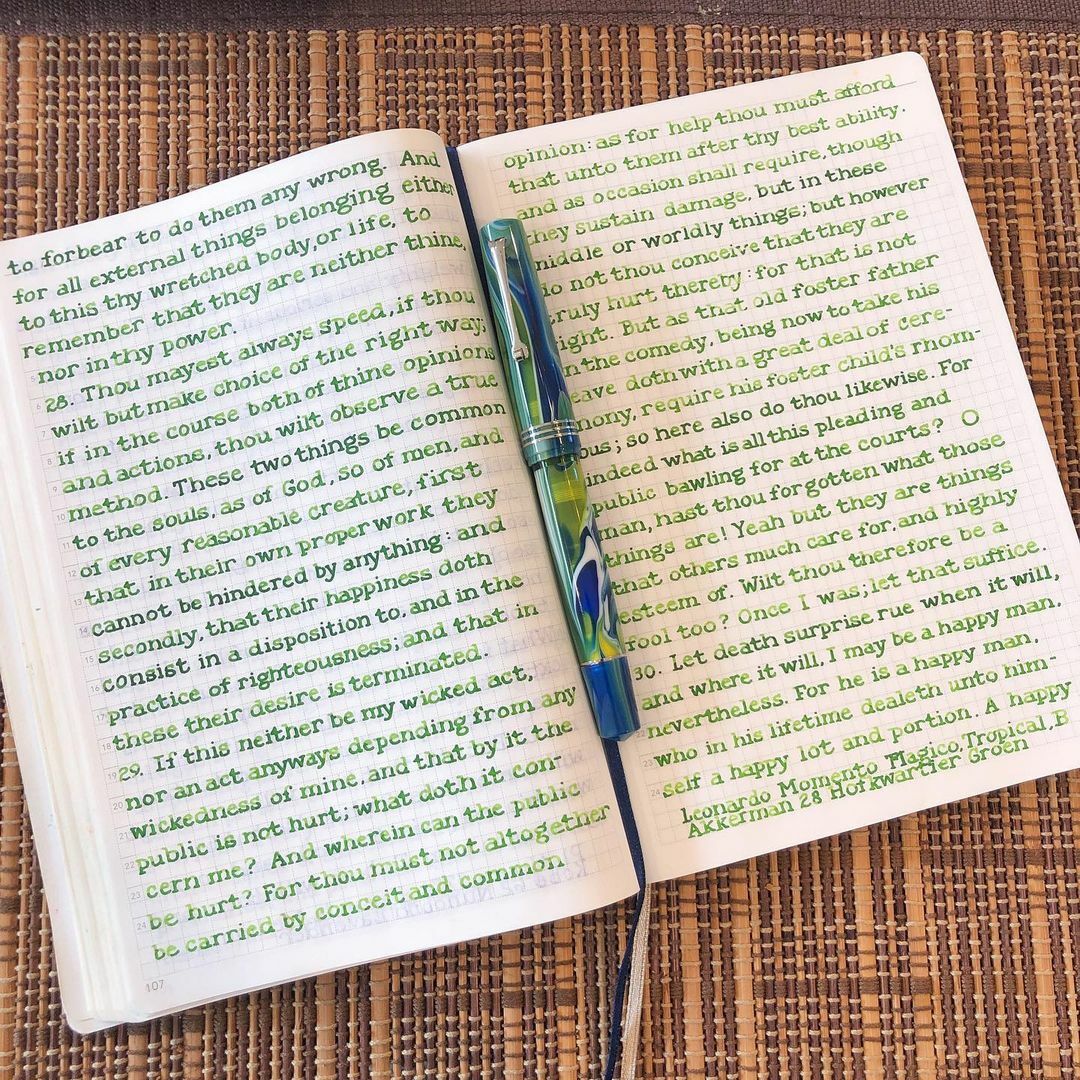 to forbear to do them any wrong. And
for all external things belonging either
to this thy wretched body, or life, to
remember that they are neither thine,
nor in thy power.
28. Thou mayest always speed, if thou
wilt but make choice of the right way;
if in the course both of thine opinions
and actions, thou wilt observe a true
method. These two things be common
to the souls, as of God, so of men, and
of every reasonable creature, first
that in their own proper work they
cannot be hindered by anything: and
secondly, that their happiness doth
consist in a disposition to, and in the
practice of righteousness; and that in
these their desire is terminated.
29. If this neither be my wicked act,
nor an act anyways depending from any
wickedness of mine, and that by it the
public is not hurt; what doth it con-
cern me? And wherein can the public
be hurt? For thou must not altogether
be carried by conceit and common
107
opinion: as for help thou must afford
that unto them after thy best ability,
and as occasion shall require, though
they sustain damage, but in these
middle or worldly things; but however
do not thou conceive that they are
truly hurt thereby: for that is not
right. But as that old foster father
in the comedy, being now to take his
leave doth with a great deal of cere-
mony, require his foster child's rhom-
bus; so here also do thou likewise. For
indeed what is all this pleading and
public bawling for at the courts? O
man, hast thou forgotten what those
things are! Yeah but they are things
that others much care for, and highly
esteem of. Wilt thou therefore be a
fool too? Once I was; let that suffice.
30. Let death surprise rue when it will,
and where it will, I may be a happy man,
nevertheless. For he is a happy man,
who in his lifetime dealeth unto him-
self a happy lot and portion. A happy
Leonardo Momento Magico, Tropical, B
Akkerman 28 Hofkwartier Groen